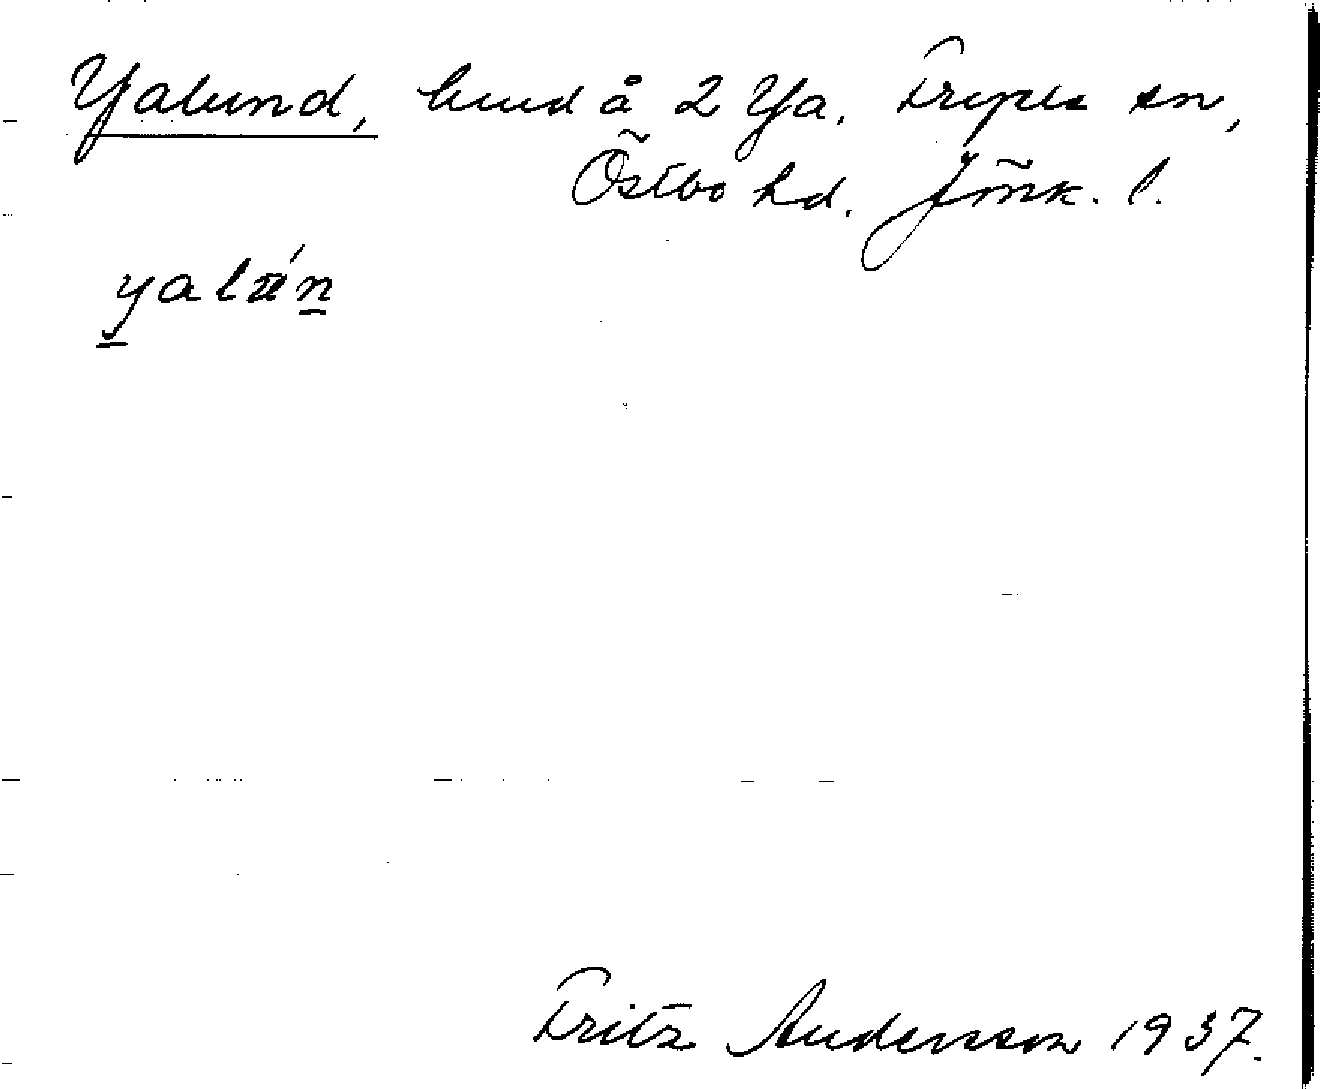 Yalund, lund å 2 Ya. Fryele sn,
Östbo hd. Jönk. l.
yalún
Fritz Andersson 1937.